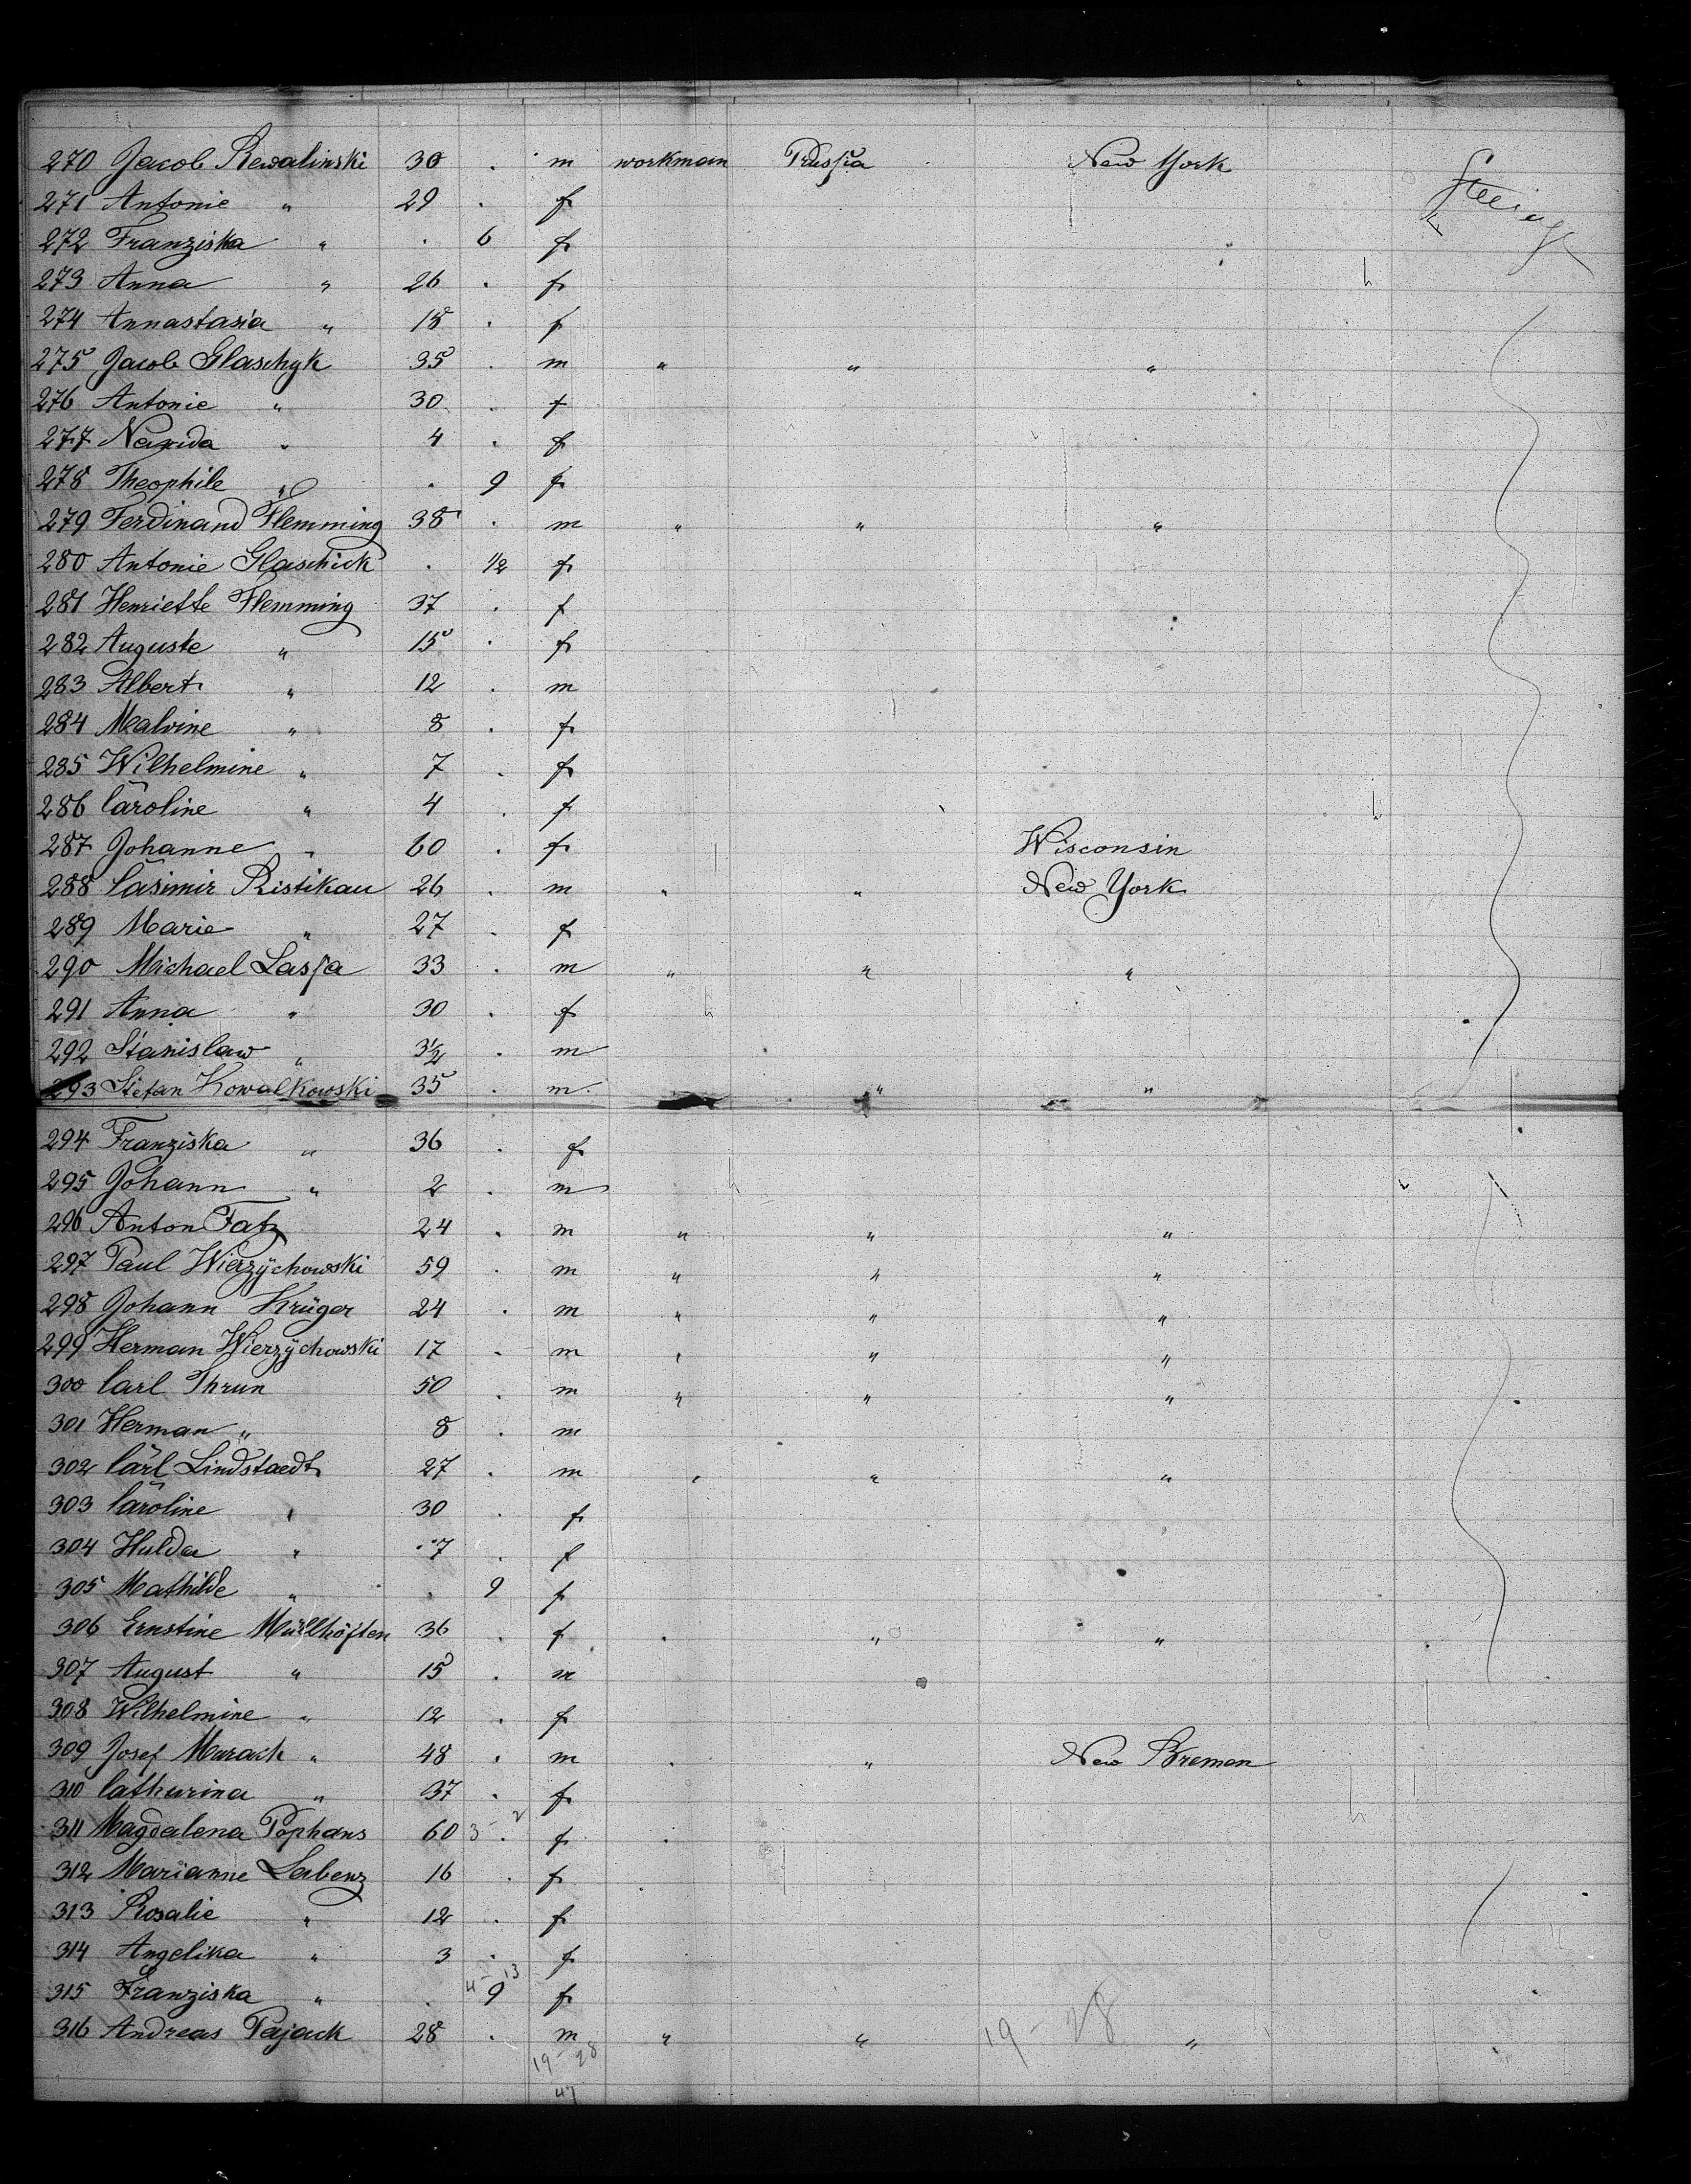 270 Jacob Rewalinski 30 . m workman Prussia New York
271 Antonie " 29 . f
272 Franziska " . 6 f
273 Anna " 26 . f
274 Annastasia " 18 . f
275 Jacob Glaschyk 35 . m " " "
276 Antonie " 30 . f
277 " 4 . f
278 Theophile " . 9 f
279 Ferdinand Flemming 38 . m " " "
280 Antonie Glaschick . 1/2 f
281 Henriette Flemming 37 . f
282 Auguste " 15 . f
283 Albert " 12 . m
284 Malvine " 8 . f
285 Wilhelmine " 7 . f
286 Caroline " 4 . f
287 Johanne " 60 . f Wisconsin
288 Casimir Ristikau 26 . m " " New York
289 Marie " 27 . f
290 Michael Lassa 33 . m " " "
291 Anna " 30 . f
292 Stanislaw " 3 1/2 . m
293 Stefan Kowalkowski 35 . m " "
294 Franziska " 36 . f
295 Johann " 2 . m
296 Anton Fatz 24 . m " " "
297 Paul Wierzÿchowski 59 . m " " "
298 Johann Krüger 24 . m " " "
299 Herman Wierzÿchowski 17 . m " " "
300 Carl Thrun 50 . m " " "
301 Herman " 8 . m
302 Carl Lindstaedt 27 . m " " "
303 Caroline " 30 . f
304 Hulda " 7 . f
305 Mathilde " . 9 f
306 Ernstine 36 . f " " "
307 August " 15 . m
308 Wilhelmine " 12 . f
309 Josef Marach " 48 . m " " New Bremen
310 Catharina " 37 . f
311 Magdalena Pophans 60 3 - 2 . f
312 Marianne Labenz 16 . f
313 Rosalie " 12 . f
314 Angelika " 3 . f
4 - 13
315 Franziska " . 9 f
316 Andreas Pajack 28 . m " " 19 - 28 "
19 - 28
47